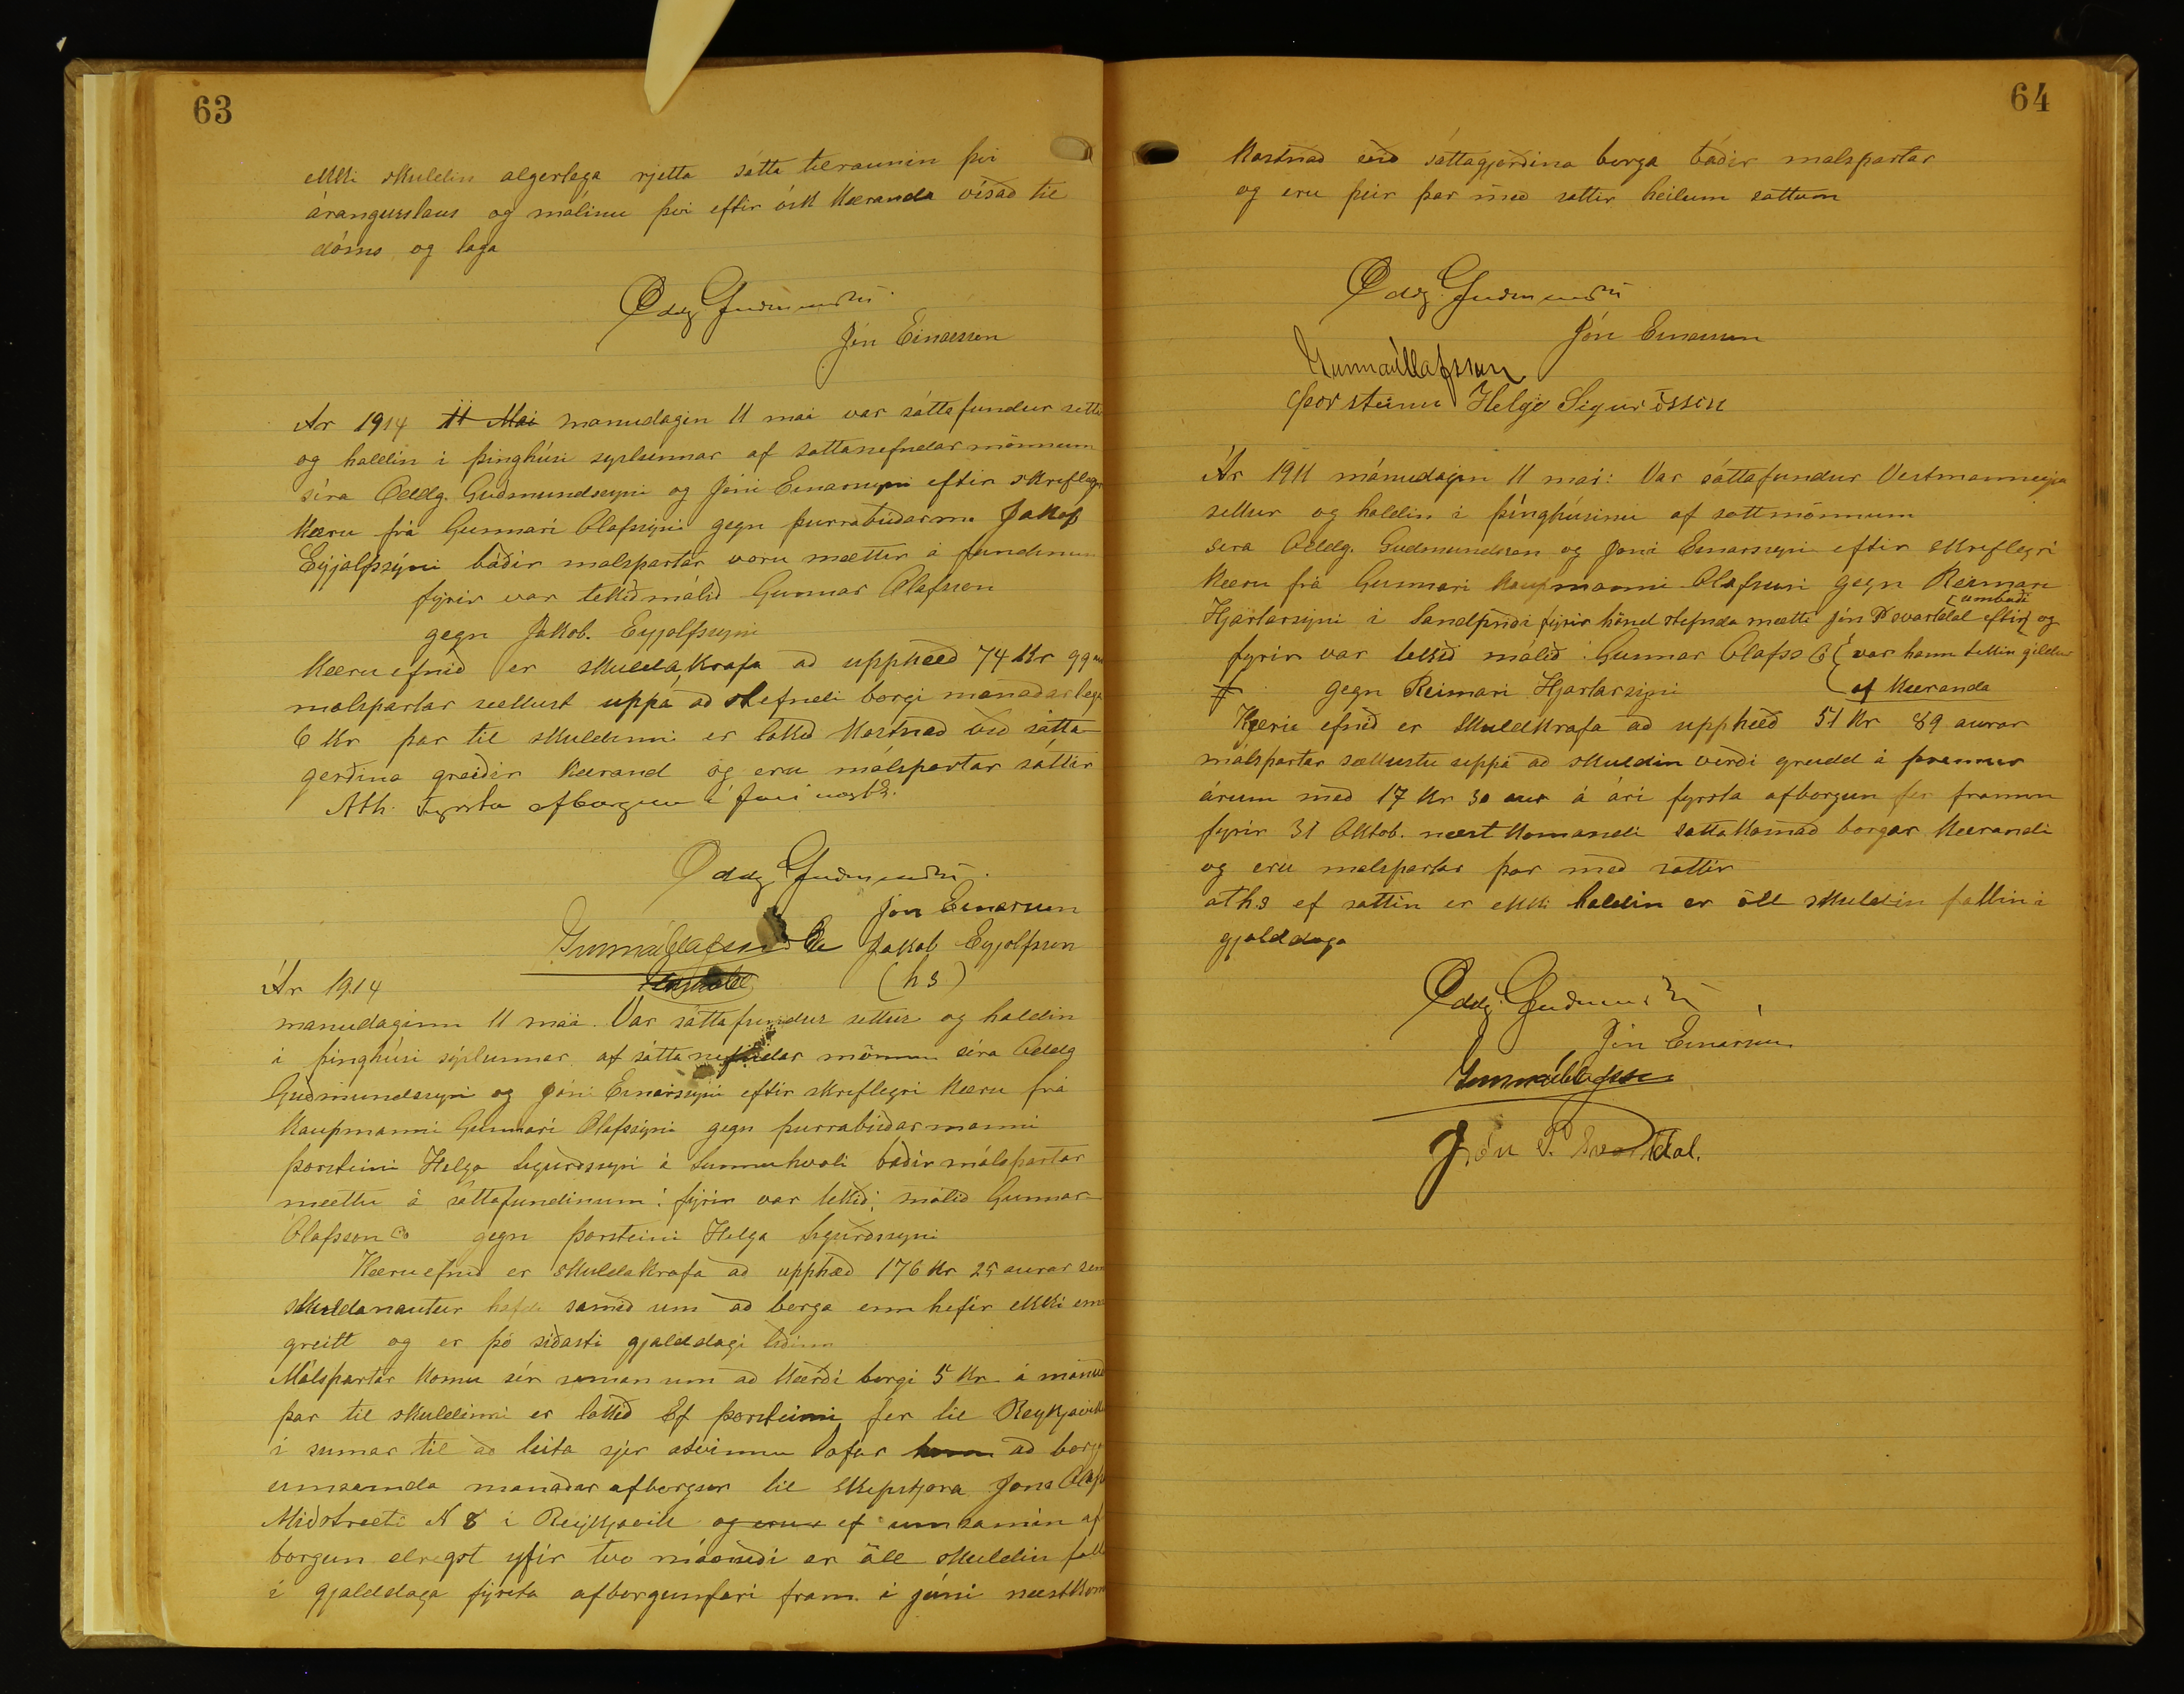 63
ekki skuldin algerlega rjetta sátta tilraunin því
árangurslaus og málinu því eftir ósk Kæranda vísað til
dóms og laga
Oddg. Guðmundss
Jón Einarsson
Ár 1914 11 Mai manudagin 11 mai var sáttafundur settur
og haldin i þinghúsi syslunnar af sattanefndar mönnum
síra Oddg. Guðmundssyni og Jóni Einarssyni eftir skriflegri
Kæru frá Gunnari Olafssyni gegn þurrabúðarm. Jakob
Eyjolfssyni báðir malspartar voru mættir á fundinum
fyrir var tekið málið Gunnar Olafsson
gegn Jakob. Eyjolfssyni
Kæruefnið er skuldakrafa að upphæð 74 Kr 99 au
malspartar sættust uppá að stefndi borgi manaðarlega
6 Kr þar til skuldinni er lokið Kostnað við sátta
gerðina greiðir Kærand og eru málspartar sáttir
Ath. Fyrsta afborgun í Juni næstk.
Oddg Guðmundss
Jón Einarsson
Gunnar Ólafsson & Co Jakob Eyjolfsson
(h s)
Ár 1914
manudaginn 11 maí. Var sáttafundur settur og haldin
i þinghúsi sýslunnar af sáttanefndar mönnum síra Oddg
Guðmundssyni og Jóni Einarssyni eftir skriflegri Kæru frá
Kaupmanni Gunnari Olafssyni gegn þurrabúðarmanni
Þorsteini Helga Sigurðssyni á Sunnuhvoli báðir málspartar
mættu á sáttafundinum: fyrir var tekið: málið Gunnar
Olafsson Co gegn Þorsteini Helga Sigurðssyni
Kæruefnið er skuldakrafa að upphæð 176 Kr 25 aurar sem
skuldanautur hafði samið um að borga enn hefir ekki enn
greitt og er þó síðasti gjalddagi liðinn
Málspartar komu sér saman um að Kærði borgi 5 Kr á mánuði
þar til skuldinni er lokið Ef Þorsteinn fer til Reykjavíkur
í sumar til að leita sjer atvinnu lofar hann að borga
umsamda manaðar afborgun til skipstjora Jons Olafs
Miðstræti N 8 i Reykjavik og eru ef umsamin af
borgun dregst yfir tvo mánuði er öll skuldin fallin
í gjalddaga fyrsta afborgun fari fram i júni næstkom
64
Kostnað við sáttagjörðina borga báðir malspartar
og eru þeir þar með sattir heilum sattum
Oddg. Guðmundss
Jón Einarsson
Gunnar Ólafsson
Þorsteinn Helgi Sigurðsson
Ár 1911 mánudagin 11 mai: Var sáttafundur Vestmanneyja
settur og haldin i þinghúsinu af sattmönnum
sera Oddg. Gudmundsson og Joni Einarssyni eftir skriflegri
Kæru frá Gunnari kaupmanni Olafssni gegn Reimari
Hjartarsyni i Sandprýði fyrir hönd stefnda mætti Jón P svartdal eftir umboði og
fyrir var tekið málið: Gunnar Olafss Co var hann tekin gildur
gegn Reimari Hjartarsyni af Kæranda
Kæru efnið er skuldkrafa að upphæð 51 Kr 89 aurar
málspartar sættustu uppá að skuldin verði greidd á þremur
árum með 17 Kr 30 aur á ári fyrsta afborgun fer framm
fyrir 31 Oktob. næst komandi sattakosnað borgar Kærandi
og eru malspartar þar með sattir
aths ef sattin er ekki haldin er öll skuldin fallin i
gjalddaga
Oddg. Guðmundss
Jón Einarsson
Gunnar Ólafsson
Jón P. Svartdal.